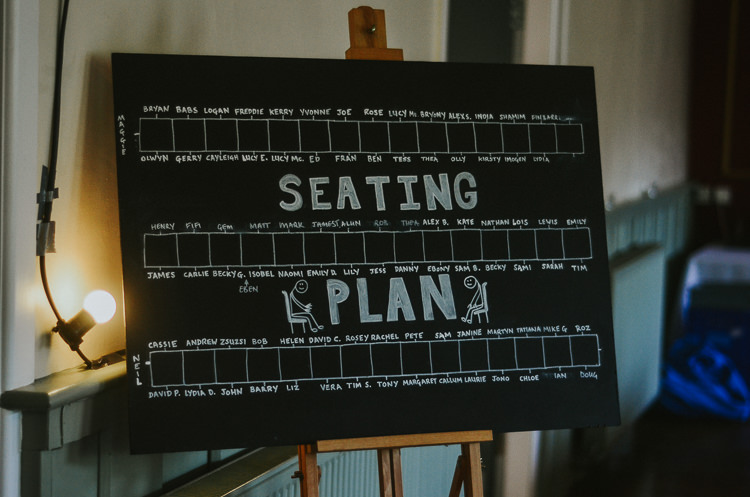 BRYAN BABS LOGAN FREDDIE KERRY YVONNE JOE ROSE LUCY Mc. BRYONY ALEX S. INDIA SHAMIM
MAGGIE
OLWYN GERRY CAYLEIGH LUCY E. LUCY Mc. ED FRAN BEN TESS THEA OLLY KIRSTY IMOGEN LYDIA
SEATING
HENRY FIFI GEM MATT MARK JAMEST ALUN ROB THEA ALEX B. KATE NATHAN LOIS LEWIS EMILY
JAMES CARLIE BECKY G. ISOBEL NAOMI EMILY D. LILY JESS DANNY EBONY SAM B. BECKY SAMI SARAH TIM
EBEN
PLAN
CASSIE ANDREW ZSUZSI BOB HELEN DAVID C. ROSEY RACHEL PETE SAM JANINE MARTYN TATIANA MIKE G ROZ
NEIL
DAVID P. LYDIA D. JOHN BARRY LIZ VERA TIM S. TONY MARGARET CALLUM LAURIE JONO CHLOE IAN DOUG